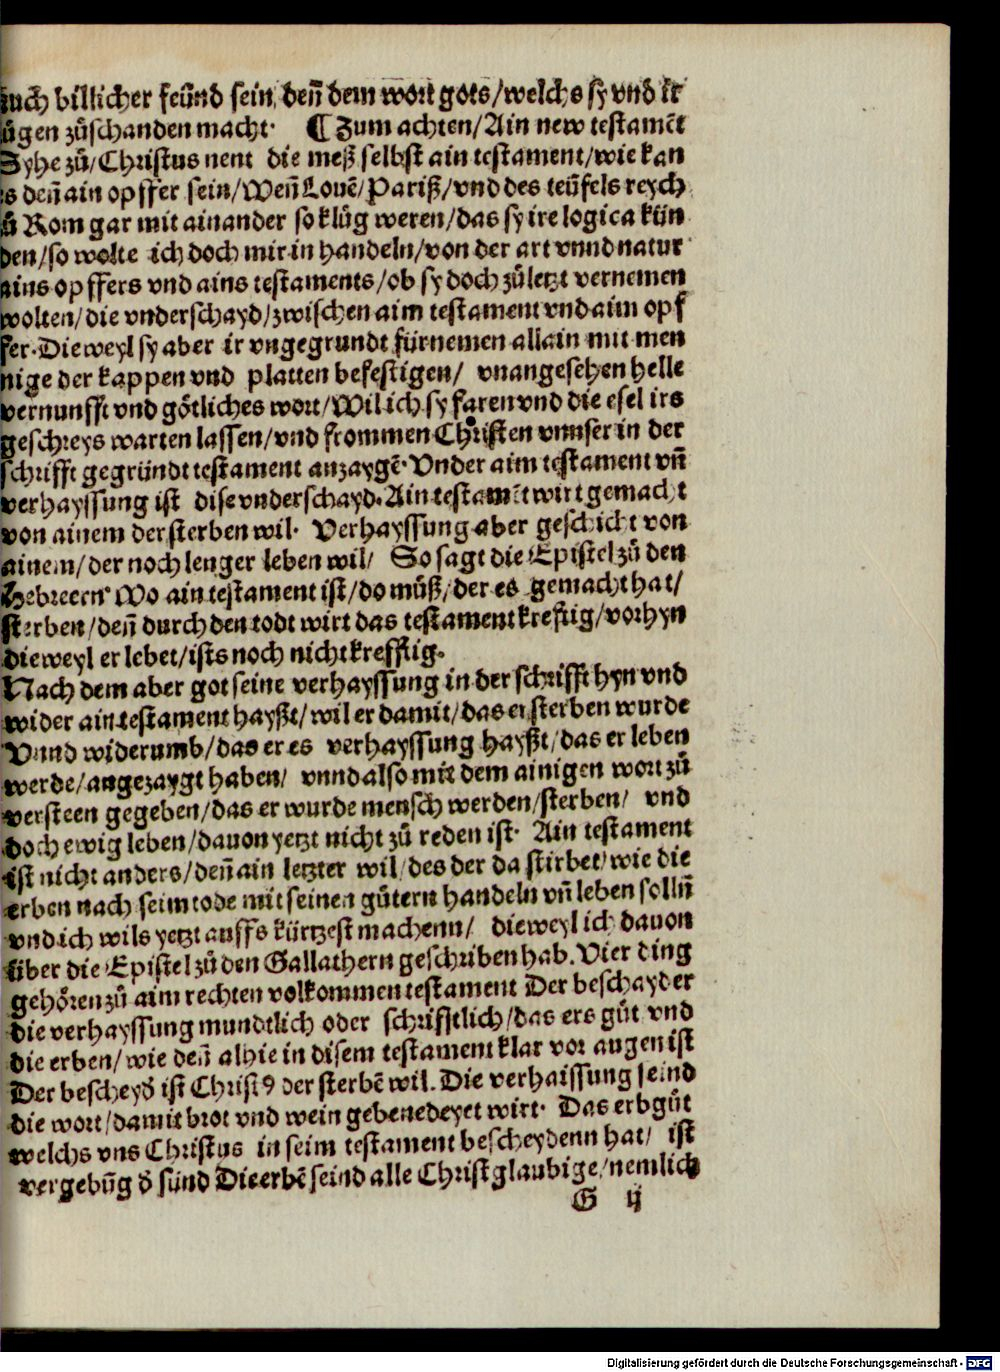 auch billicher feünd sein, deñ dem wort gots/welchs sy vnd ir
lügen zůschanden macht· ¶ Zum achten/Ain new testamēt
Syhe zů/Christus nent die meß selbst ain testament/wie kan
es deñ ain opffer sein/Weñ Louē/Pariß/vnd des teüfels reych
zů Rom gar mit ainander so klůg weren/das sy ire logica kün
den/so wolte ich doch mir in handeln/von der art vnnd natur
ains opffers vnd ains testaments/ob sy doch zůletzt vernemen
wolten/die vnderschayd/zwischen aim testament vnd aim opf
fer·Dieweyl sy aber ir vngegrundt fürnemen allain mit men
nige der kappen vnd platten befestigen/ vnangesehen helle
vernunfft vnd götliches wort/Wil ich sy faren vnd die esel irs
geschreys warten lassen/vnd frommen Christen vnnser in der
schrifft gegründt testament anzaygē·Vnder aim testament vñ
verhayssung ist dise vnderschayd·Ain testamēt wirt gemacht
von ainem der sterben wil· Verhayssung aber geschicht von
ainem/der noch lenger leben wil/ So sagt die Epistel zů den
Hebreern· Wo ain testament ist/do můß/der es gemacht hat/
sterben/deñ durch den todt wirt das testament kreftig/vorhyn
dieweyl er lebet/ists noch nicht krefftig·
Nach dem aber got seine verhayssung in der schrifft hyn vnd
wider ain testament hayßt/wil er damit/das er sterben wurde
Vnnd widerumb/das er es verhayssung hayßt/das er leben
werde/angezaygt haben/ vnnd also mit dem ainigen wort zů
versteen gegeben/das er wurde mensch werden/sterben/ vnd
doch ewig leben/dauon yetzt nicht zů reden ist· Ain testament
ist nicht anders/deñ ain letzter wil/des der da stirbet/wie die
erben nach seim tode mit seinen gůtern handeln vñ leben sollñ
vnd ich wils yetzt auffs kürtzest machenn/ dieweyl ich dauon
über die Epistel zů den Gallathern geschriben hab. Vier ding
gehören zů aim rechten volkommen testament Der beschayder
die verhayssung mundtlich oder schrifftlich/das ers gůt vnd
die erben/wie deñ alhie in disem testament klar vor augen ist
Der bescheyd̄ ist Christꝰ der sterbē wil. Die verhaissung seind
die wort/damit brot vnd wein gebenedeyet wirt· Das erbgůt
welchs vns Christus in seim testament bescheydenn hat/ ist
vergebūg d̄ sünd Die erbē seind alle Christglaubige/nemlich
G ij
Digitalisierung gefördert durch die Deutsche Forschungsgemeinschaft - DFG